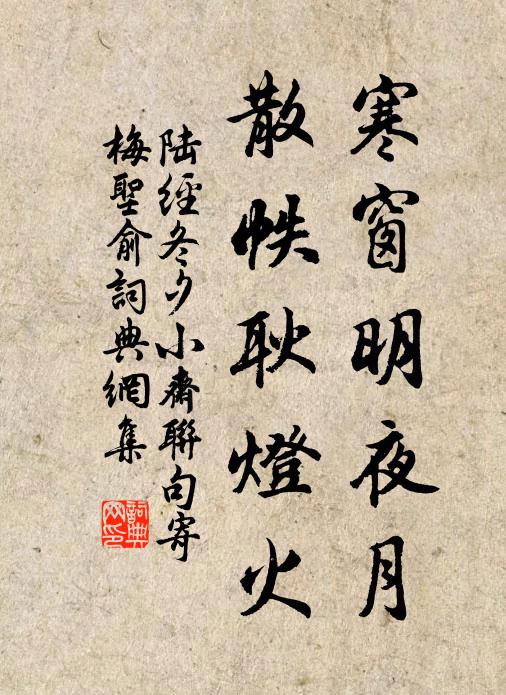 寒窗明夜月
散帙耿燈火
陸經冬夕小齋聯句寄
梅聖俞詞典網集
詞典
网印